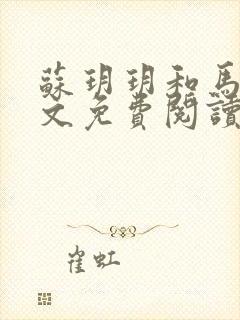 蘇玥玥和馬
文免費閱讀
崔虹